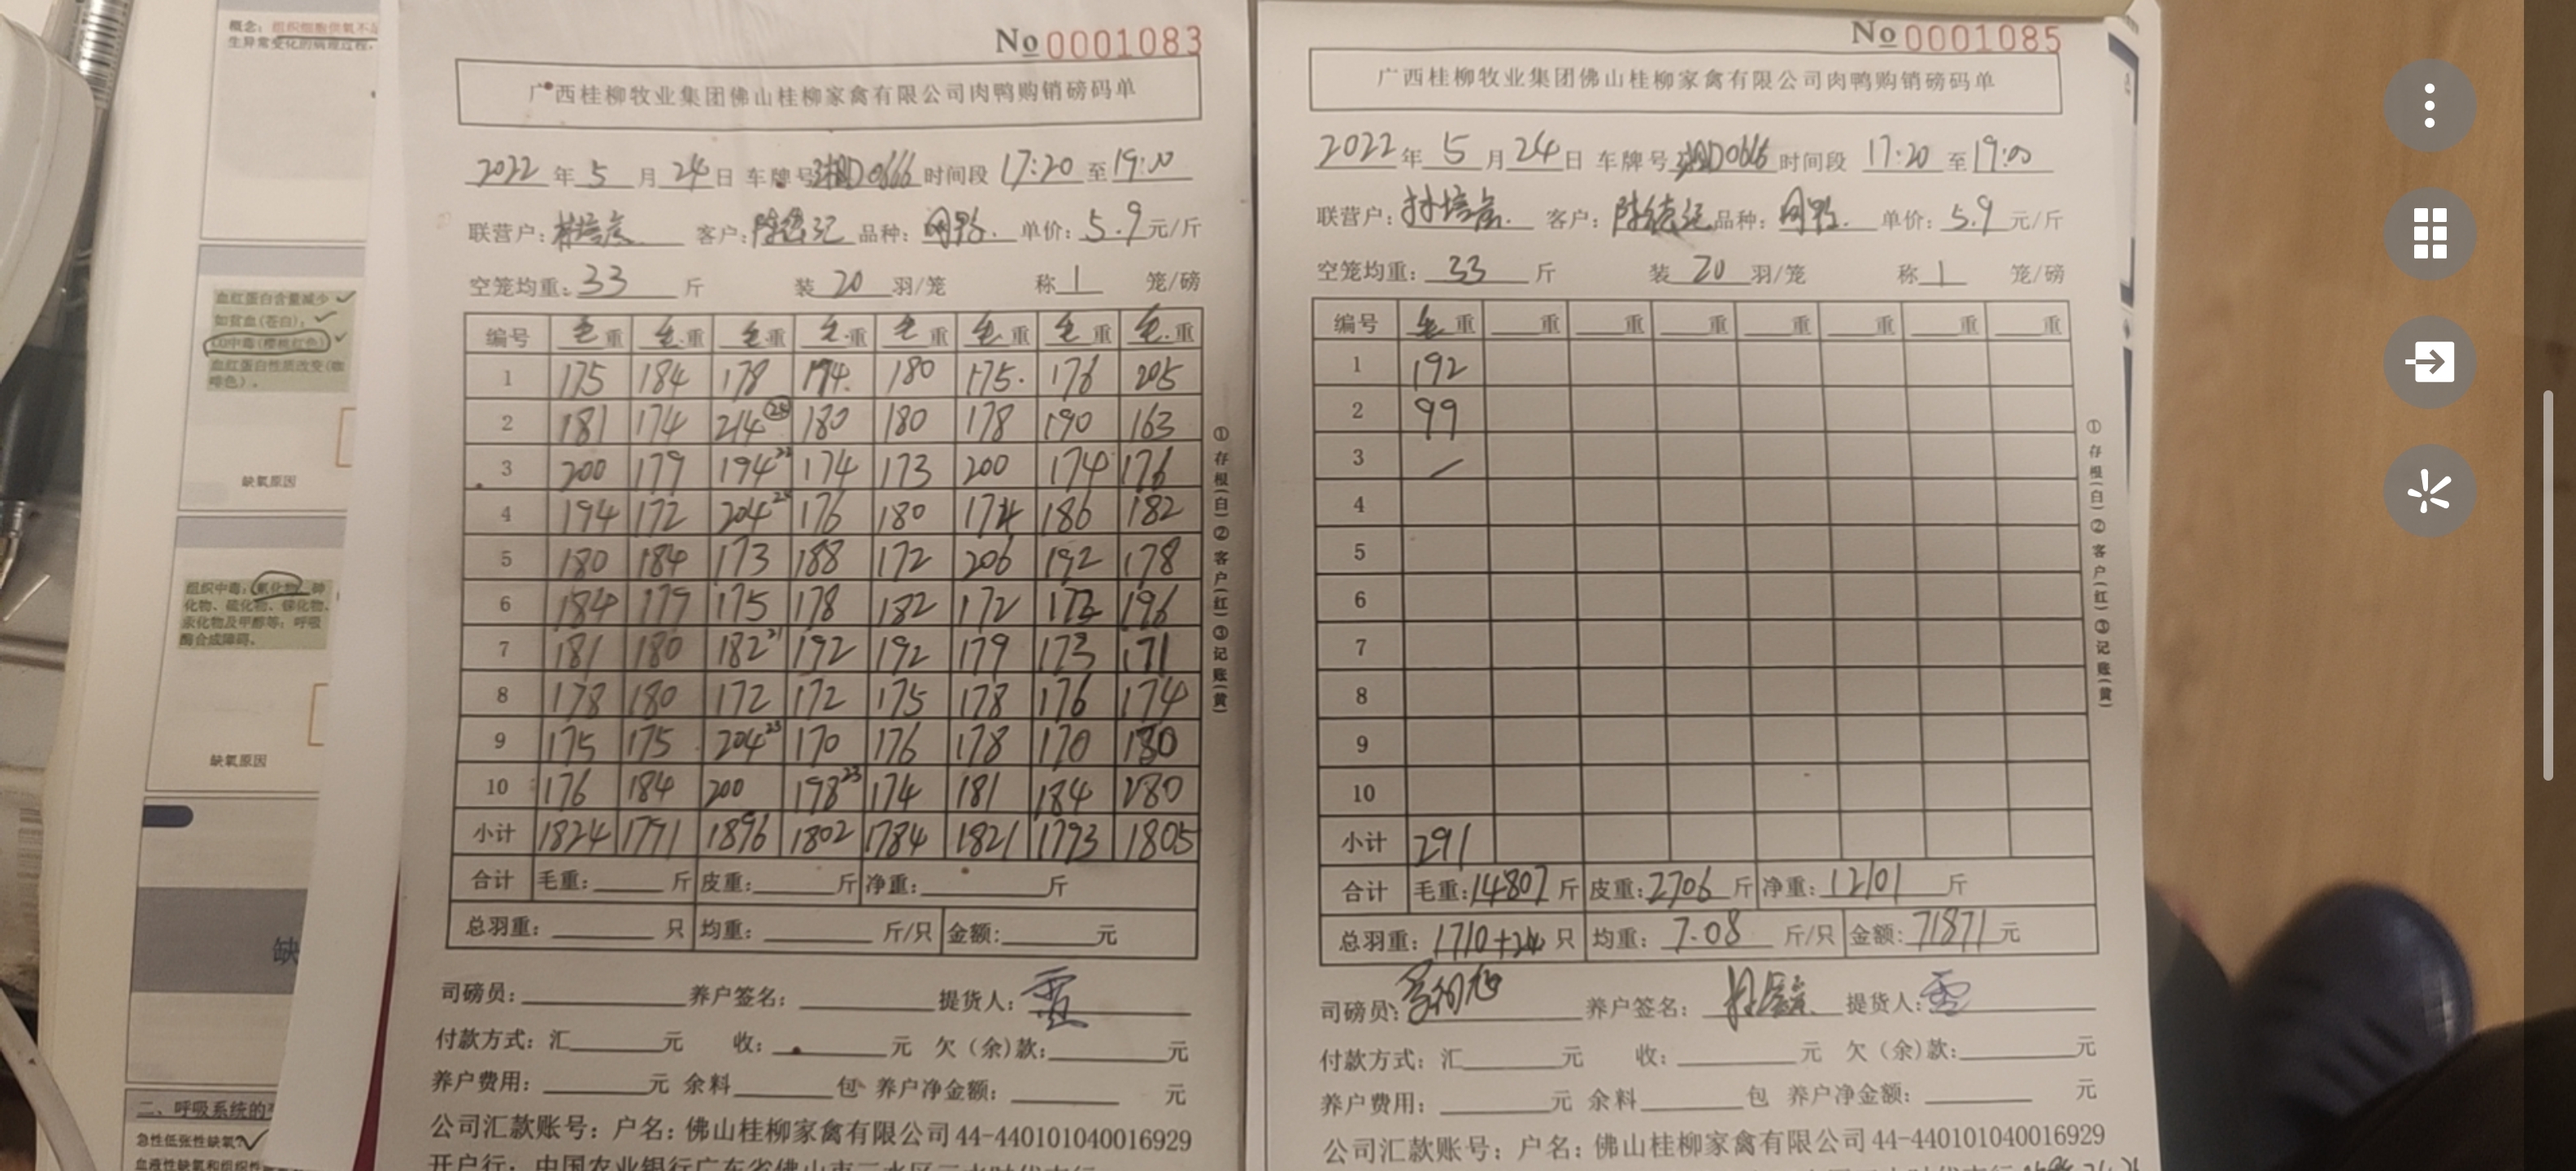 概念：组织细胞供氧不足
生异常变化的病理过程，
血红蛋白含量减少
如贫血(苍白)；
CO中毒(樱桃红色)
血红蛋白性质改变(咖
啡色)。
缺氧原因
组织中毒：氰化物、砷
化物、硫化物、锑化物、
汞化物及甲醇等；呼吸
酶合成障碍。
缺氧原因
缺
二、呼吸系统的
急性低张性缺氧
No 0001083
广西桂柳牧业集团佛山桂柳家禽有限公司肉鸭购销磅码单
2022年 5 月 24日 车牌号 D0666 时间段 17:20 至 19:00
联营户： 客户：陈德记 品种： 单价：5.9 元/斤
空笼均重：33 斤 装 20 羽/笼 称 1 笼/磅
编号 毛重 毛重 毛重 毛重 毛重 毛重 毛重 毛重
1 175 184 178 194 180 175 176 205
2 181 174 214 180 180 178 190 163
3 200 179 194 22 174 173 200 174 176
4 194 172 204 176 180 174 186 182
5 180 184 173 188 172 206 192 178
6 184 179 175 178 182 172 172 196
7 181 180 182 21 192 192 179 173 171
8 178 180 172 172 175 178 176 174
9 175 175 204 23 170 176 178 170 180
10 176 184 200 198 23 174 181 184 180
小计 1824 1791 1896 1802 1784 1821 1793 1805
合计 毛重： 斤 皮重： 斤 净重： 斤
总羽重： 只 均重： 斤/只 金额： 元
司磅员： 养户签名： 提货人：
付款方式：汇 元 收： 元 欠（余）款： 元
养户费用： 元 余料 包 养户净金额： 元
公司汇款账号：户名：佛山桂柳家禽有限公司 44-440101040016929
①存根(白)②客户(红)③记账(黄)
No 0001085
广西桂柳牧业集团佛山桂柳家禽有限公司肉鸭购销磅码单
2022年 5 月 24日 车牌号 D0666 时间段 17:20 至 19:00
联营户： 客户：陈德记 品种： 单价：5.9 元/斤
空笼均重：33 斤 装 20 羽/笼 称 1 笼/磅
编号 毛重 重 重 重 重 重 重 重
1 192
2 99
3
4
5
6
7
8
9
10
小计 291
合计 毛重：14807 斤 皮重：2706 斤 净重：12101 斤
总羽重：1710+24 只 均重：7.08 斤/只 金额：71871 元
司磅员： 养户签名： 提货人：
付款方式：汇 元 收： 元 欠（余）款： 元
养户费用： 元 余料 包 养户净金额： 元
公司汇款账号：户名：佛山桂柳家禽有限公司 44-440101040016929
①存根(白)②客户(红)③记账(黄)